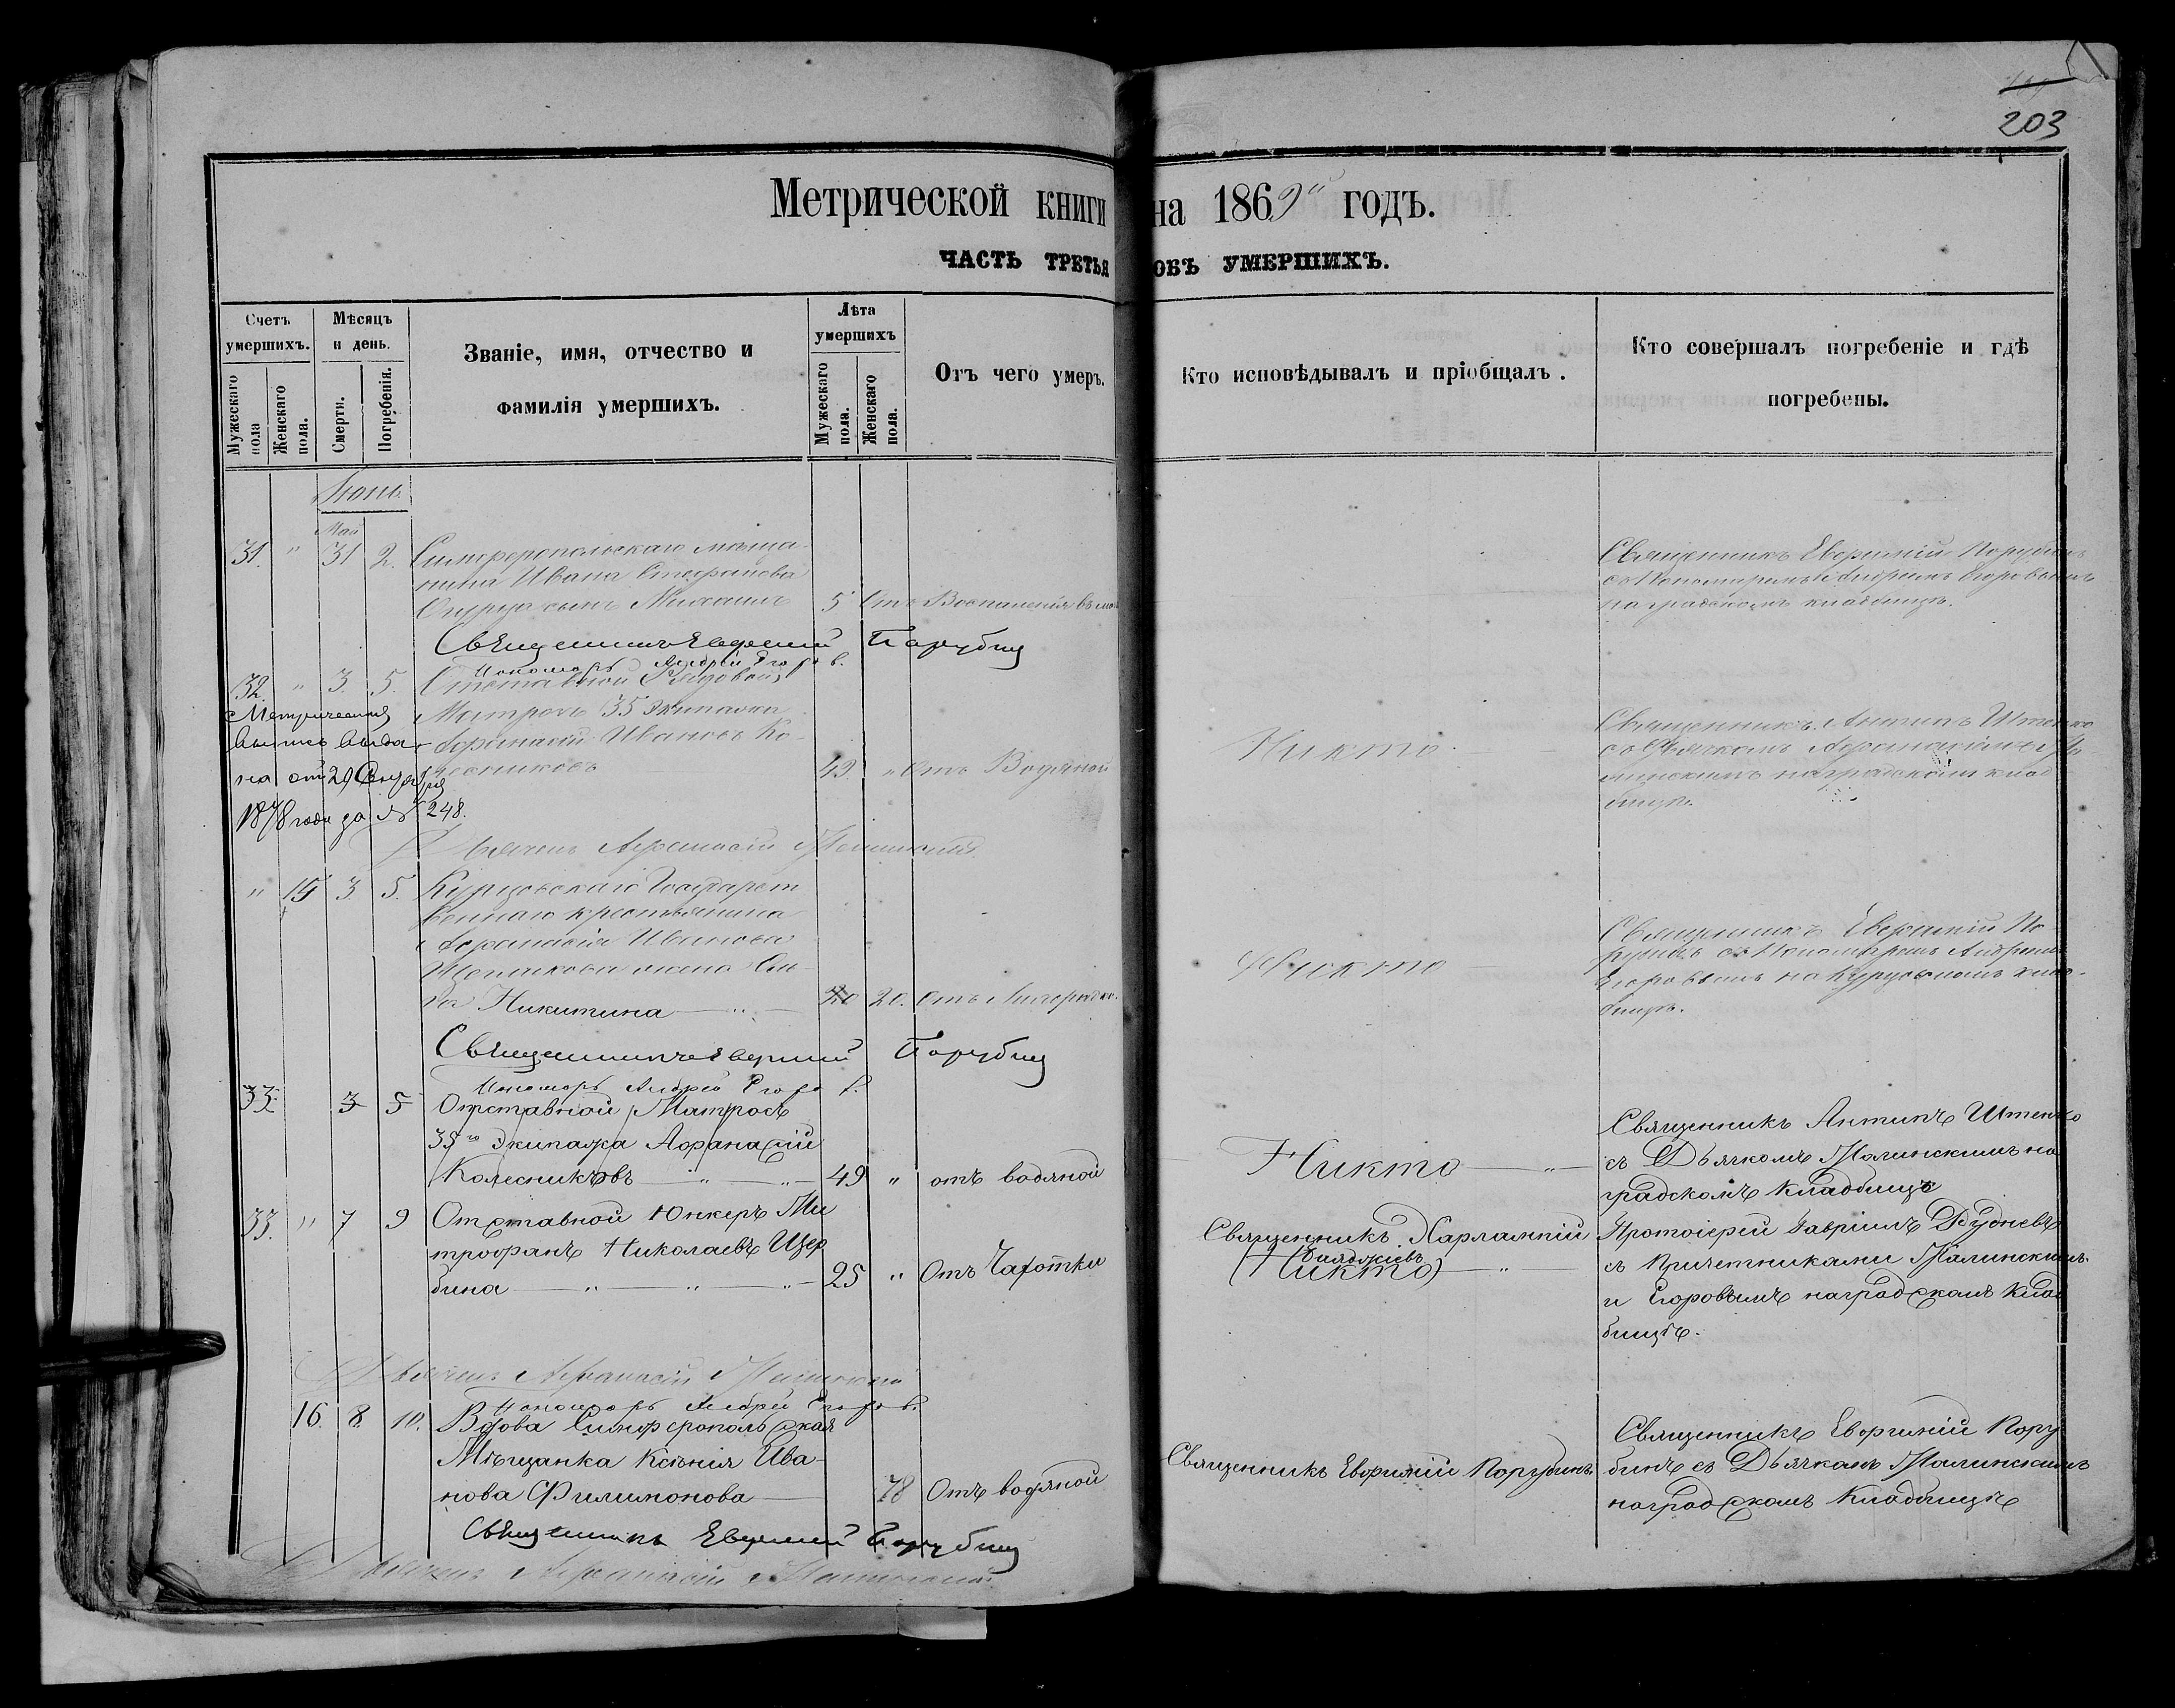 203
Метрической книги на 1869й годъ.
ЧАСТЬ ТРЕТЬЯ ОБЪ УМЕРШИХЪ.
Счетъ умершихъ.
Мужескаго пола
Женскаго пола.
Мѣсяцъ и день.
Смерти.
Погребенія.
Званіе, имя, отчество и
фамилія умершихъ.
Лѣта умершихъ
Мужескаго пола.
Женскаго пола.
Отъ чего умеръ.
Кто исповѣдывалъ и пріобщалъ.
Кто совершалъ погребеніе и гдѣ
погребены.
Іюнь
Май
31. " 31 2. Симферопольскаго мѣща-
нина Ивана Стефанова
сынъ Михаилъ 5 Отъ Воспаленія
Священникъ Евфимій Порубин
съ Пономаремъ Андреемъ Егоровымъ
на градскомъ кладбищѣ.
Священникъ Евфимій Порубин
Пономарь Андрей Егоровъ.
32. " 3. 5. Отставной Рядовой
Матросъ 35 Экипажа
Афанасій Ивановъ Ко-
лесниковъ 49. " Отъ Водяной
Метрическая
выпись выда-
на отъ 29 Января
1878 года за № 248.
Никто
Священникъ Антипъ Штенко
съ Дьячкомъ Афанасіемъ Ма-
линскимъ на градскомъ клад-
бищѣ.
Дьячекъ Афанасій Малинскій
" 15 3. 5. Курцовскаго Государст
веннаго крестьянина
Афанасія Иванова
жена
Никитина 20 20. Отъ Лихорадки.
Никто
Священникъ Евфимій По
рубинъ съ Пономаремъ Андреемъ
Егоровымъ на Курцовскомъ клад-
бищѣ.
Священникъ Евфимій Порубин
Пономарь Андрей Егоровъ.
33. 3 5 Отставной Матросъ
35го Экипажа Афанасій
Колесниковъ 49 " отъ водяной
Никто
Священникъ Антипъ Штенко
съ Дьячкомъ Малинскимъ на
градскомъ кладбищѣ
33. " 7 9 Отставной Юнкеръ Ми
трофанъ Николаевъ Щер
бина 25 " Отъ Чахотки
Священникъ Харлампій
(Никто)
Протоіерей Гавріилъ Рудневъ
съ Причетниками Малинскимъ
и Егоровымъ на градскомъ клад
бищѣ.
Дьячекъ Афанасій Малинскій
Пономарь Андрей Егоровъ.
16. 8. 10. Вдова Симферопольская
Мѣщанка Ксенія Ива-
нова Филимонова 78 Отъ водяной
Священникъ Евфимій Порубинъ
Священникъ Евфимій Пору
бинъ съ Дьячкомъ Малинскимъ
на градскомъ кладбищѣ
Священникъ Евфимій Порубин
Дьячекъ Афанасій Малинскій